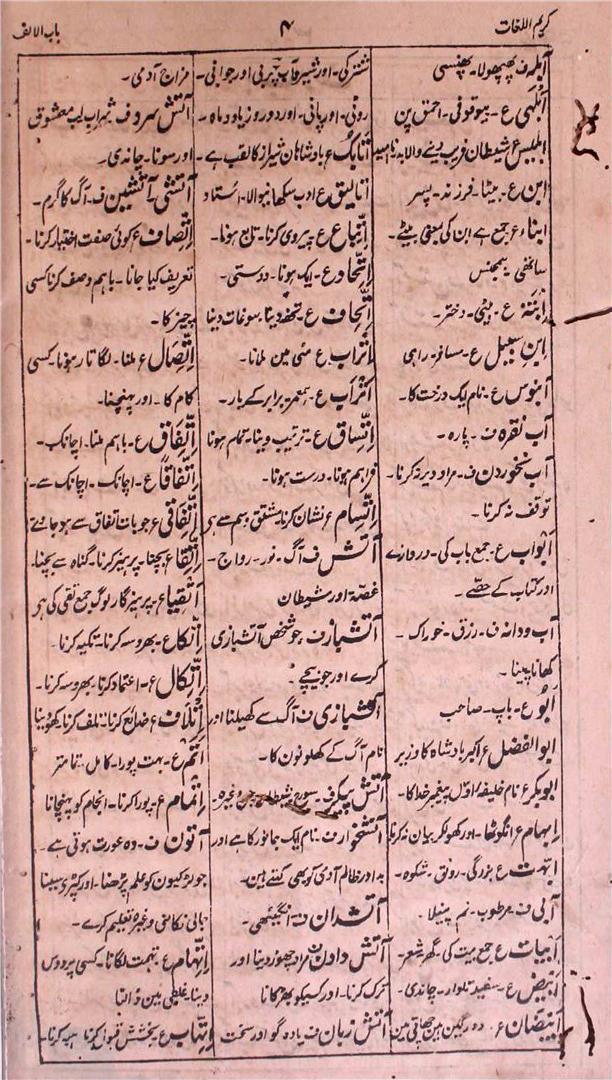 کریم اللغات
۴
باب الالف
آبلہ ف پھپھولا۔ پھنسی
اَبْلَہی ع۔ بیوقوفی۔ احمق پن
ابلیس ع شیطان فریب دینے والا
ابن ع۔ بیٹا۔ فرزند۔ پسر
ابناء ع جمع ہے ابن کی یعنی بیٹے۔
ساتھی ہمجنس
اِبْنَۃ ع۔ بیٹی۔ دختر۔
اِبنِ سَبِیل ع۔ مسافر۔ راہی
آبنوس ع۔ نام ایک درخت کا۔
آب نقرہ ف۔ پارہ۔
آب نخوردن ف۔ مراد دیر نہ کرنا۔
توقف نہ کرنا۔
اَبْوَاب ع۔ جمع باب کی۔ دروازے
اور کتاب کے حصّے۔
آب و دانہ ف۔ رزق۔ خوراک۔
کھانا پینا۔
اَبُو ع۔ باپ۔ صاحب
ابوالفضل ع اکبر بادشاہ کا وزیر
ابوبکر ع نام خلیفہ اول پیغمبر خدا کا۔
اِبہام ع انگوٹھا۔ اور کھولکر بیان نہ کرنا
اُبّہت ع بزرگی۔ رونق۔ شکوہ۔
آبی ف۔ مرطوب۔ نم۔
اَبیات ع جمع بیت کی۔ گھر شعر۔
اَبْیَض ع۔ سفید تلوار۔ چاندی۔
اَبْیَضَان ع۔ دو رگین ہین چھاتی مین
روئی۔ اور پانی۔ اور دو روز یا دو ماہ۔
اَتَابَک ع بادشاہان شیراز کا لقب ہے۔
اتالیق ع ادب سکھانیوالا۔ استاد
اِتِّبَاع ع پیروی کرنا۔ تابع ہونا۔
اِتِّحاد ع۔ ایک ہونا۔ دوستی۔
اِتْحَاف ع۔ تحفہ دینا۔ سوغات دینا
اِتْرَاب ع مٹی مین ملانا۔
اَتْرَاب ع۔ ہمعمر۔ برابر کے یار۔
اِتِّسَاق ع۔ ترتیب دینا۔ تمام ہونا
فراہم ہونا۔ درست ہونا۔
اِتِّسام ع نشان کرنا۔ مشتق وسم سے ہی
آتش ف آگ۔ نور۔ رواج۔
غصّہ اور شیطان
آتشباز ف جو شخص آتشبازی
کرے اور جو بیچے۔
آتشبازی ف آگ سے کھیلنا اور
نام آگ کے کھلونون کا۔
آتش پیکر ف۔ سورج۔ شیطان۔ وغیرہ۔
آتشخوار ف۔ نام ایک جانور کا ہے اور
بد اور ظالم آدمی کو بھی کہتے ہین۔
آتشدان ف انگیٹھی۔
آتش دادن ف مراد چھوڑ دینا اور
ترک کرنا۔ اور کسیکو بھڑکانا
آتش زبان ف یادہ گو اور سخت
مزاج آدمی۔
آتش سرد ف شراب لب معشوق
اور سونا۔ چاندی۔
آتشی آتشین ف۔ آگ کا گرم۔
اِتِّصاف ع کوئی صفت اختیار کرنا۔
تعریف کیا جانا۔ باہم وصف کرنا کسی
چیز کا۔
اِتِّصَال ع ملنا۔ لگاتار ہونا۔ کسی
کام کا۔ اور پہنچنا۔
اِتِّفَاق ع۔ باہم ملنا۔ اچانک۔
اِتِّفَاقًا ع۔ اچانک۔ اچانک سے۔
اِتِّفَاقی ع جو بات اتفاق سے ہو جائے
اِتِّقَا ع بچنا۔ پرہیز کرنا۔ گناہ سے بچنا۔
اَتْقِیَا ع۔ پرہیزگار لوگ جمع تقی کی ہی
اِتِّکا ع۔ بھروسہ کرنا۔ تکیہ کرنا۔
اِتِّکَال ع۔ اعتماد کرنا۔ بھروسہ کرنا۔
اِتْلَاف ع ضائع کرنا۔ تلف کرنا۔ کھو دینا
اَتَمّ ع۔ بہت پورا۔ کامل۔ تمامتر
اِتْمَام ع۔ پورا کرنا۔ انجام کو پہنچانا
آتون ف۔ وہ عورت ہوتی ہے۔
جو لڑکیون کو علم پڑھنا۔ اور کپڑے سینا
جالی نکالنی وغیرہ تعلیم کرے۔
اِتِّہَام ع۔ تہمت لگانا۔ کسی پر دوس
دینا۔ غلطی مین ڈالنا
اِتِّہَاب ع۔ بخشش قبول کرنا ہبہ کرنا۔